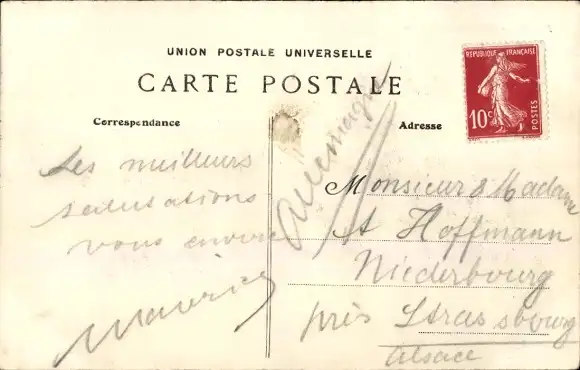 UNION POSTALE UNIVERSELLE
CARTE POSTALE
RÉPUBLIQUE FRANÇAISE
10c
POSTES
Correspondance
Adresse
Les meilleurs
salutations
vous envoie
Maurice
Allemagne
Monsieur & Madame
A Hoffmann
Niederbourg
près Strassbourg
Alsace